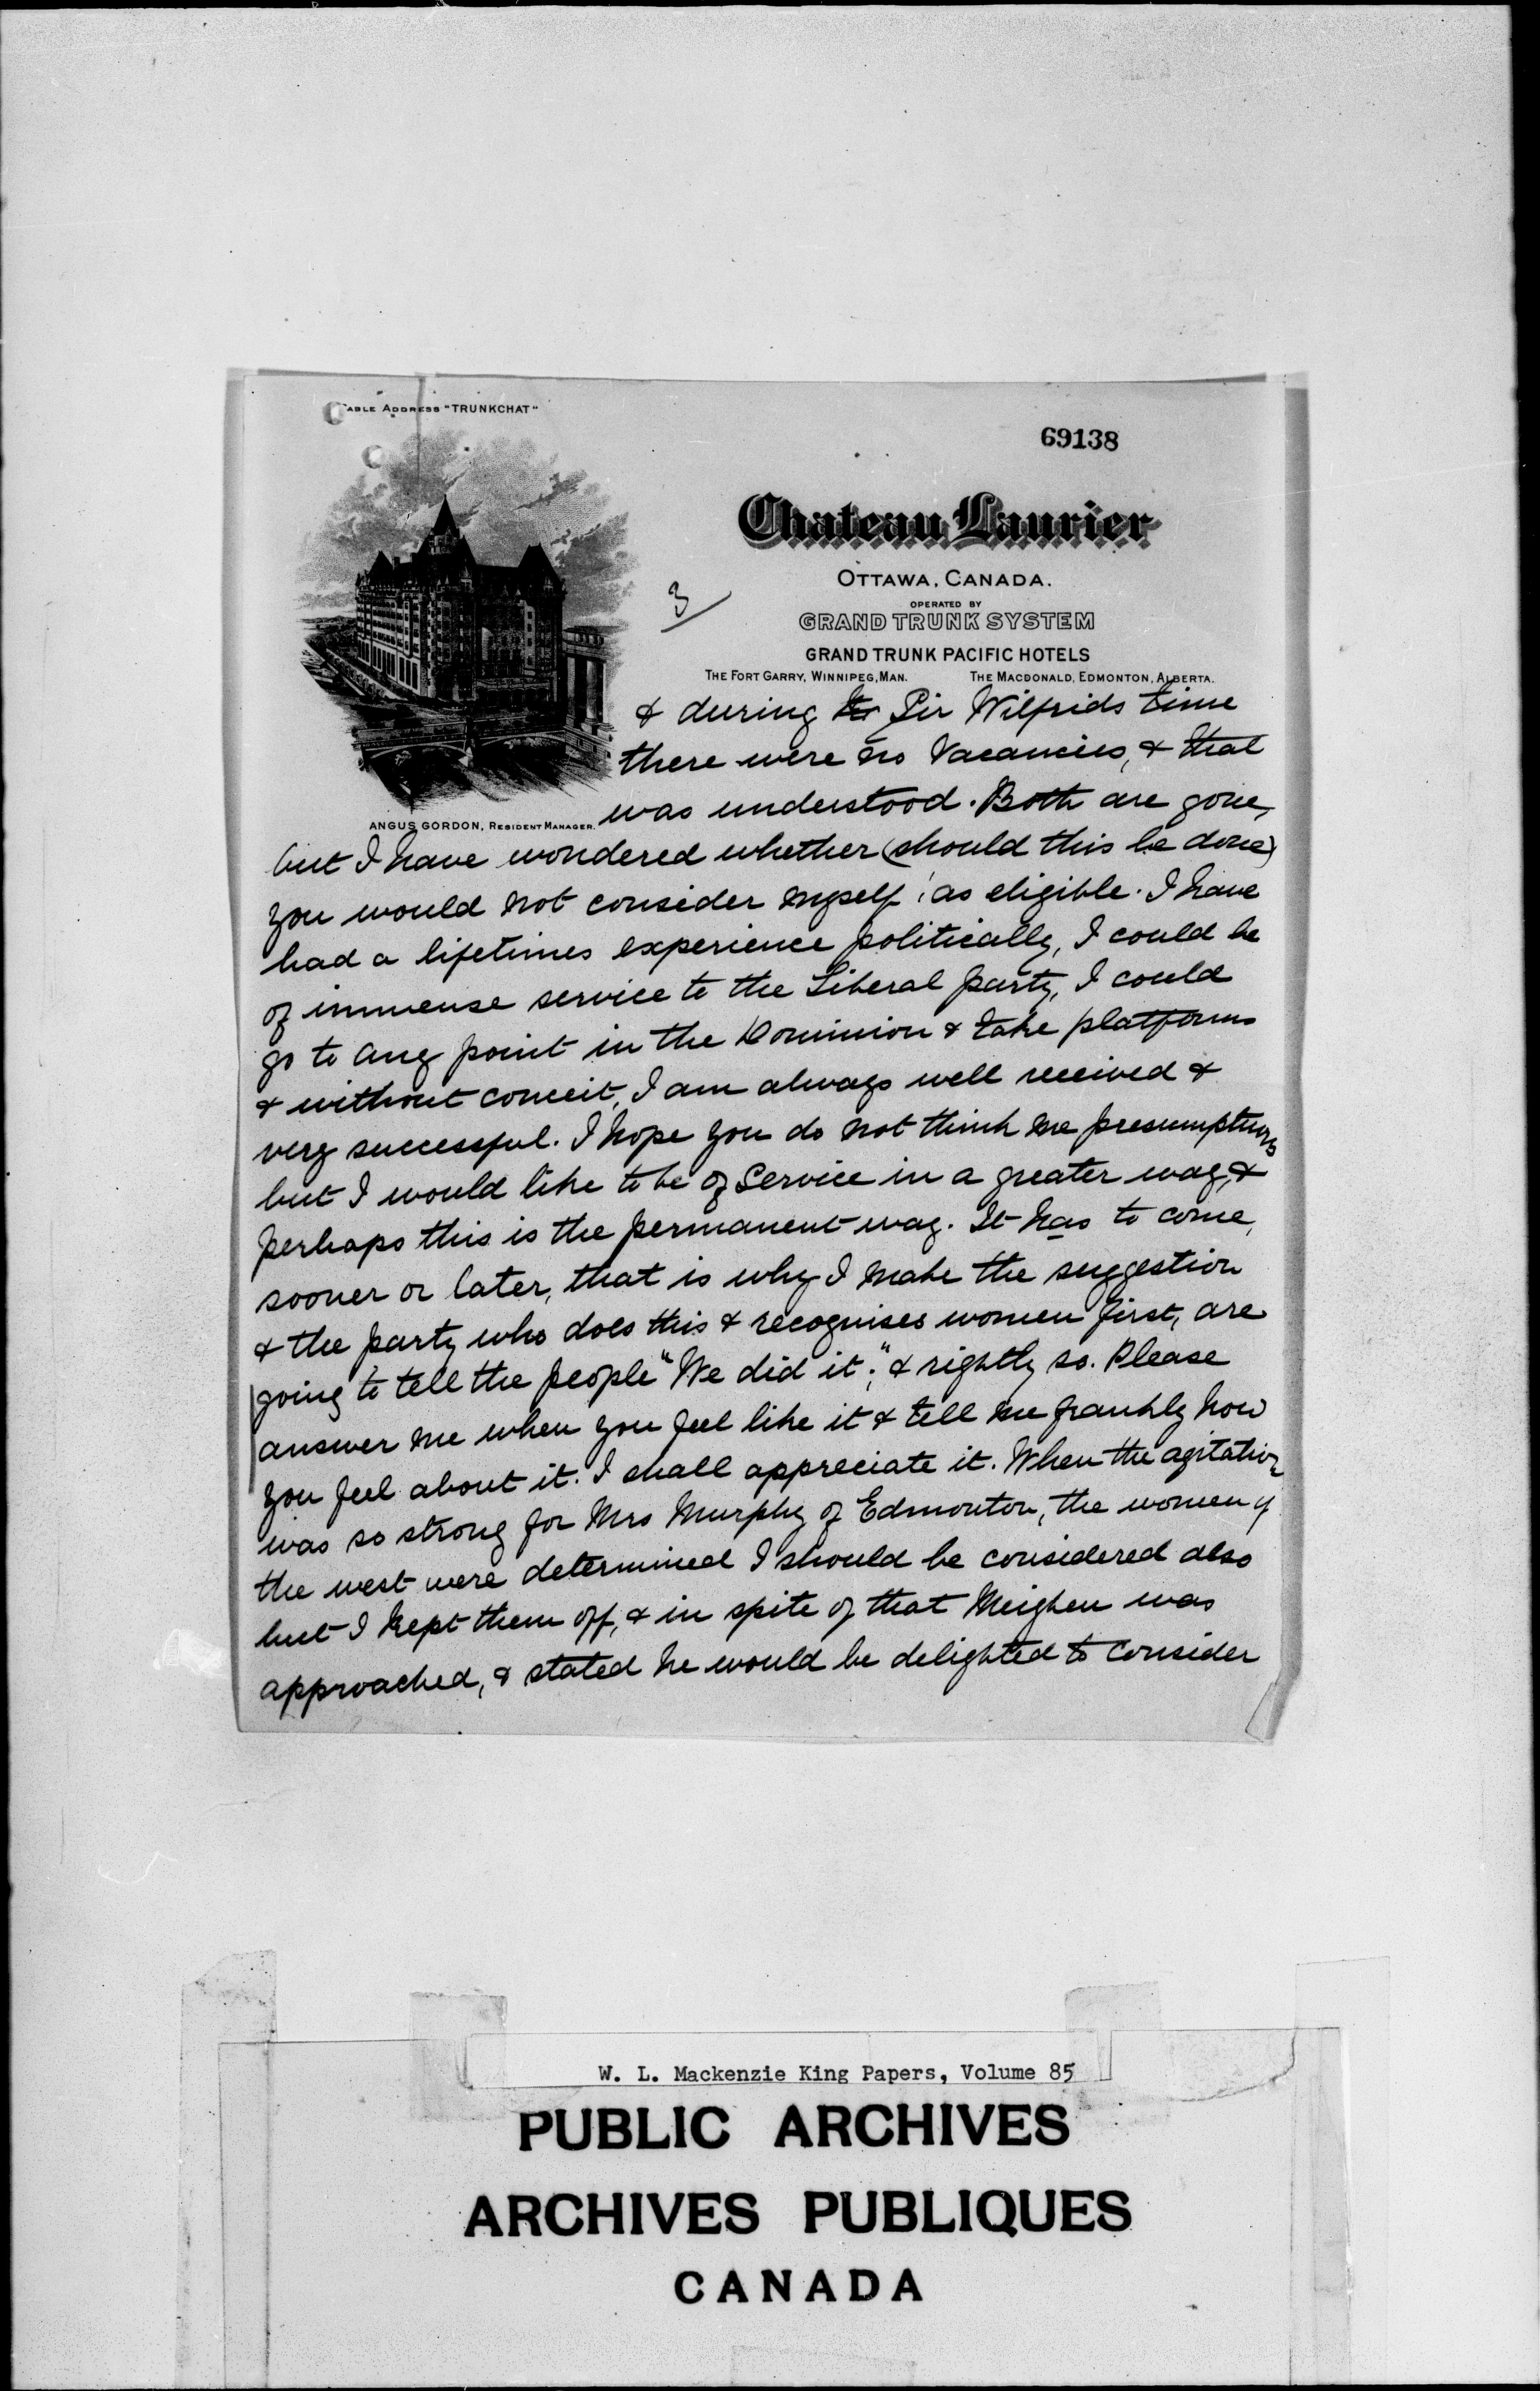 CABLE ADDRESS "TRUNKCHAT"
69138
Chateau Laurier
OTTAWA, CANADA.
OPERATED BY
GRAND TRUNK SYSTEM
GRAND TRUNK PACIFIC HOTELS
THE FORT GARRY, WINNIPEG, MAN. THE MACDONALD, EDMONTON, ALBERTA.
3
ANGUS GORDON, RESIDENT MANAGER.
& during Sir Wilfrids time
there were no Vacancies, & that
was understood. Both are gone,
but I have wondered whether (should this be done)
you would not consider myself as eligible. I have
had a lifetimes experience politically, I could be
of immense service to the Liberal party, I could
go to any point in the Dominion & take platforms
& without conceit, I am always well received &
very successful. I hope you do not think me presumptuous
but I would like to be of Service in a greater way, &
perhaps this is the permanent way. It has to come,
sooner or later, that is why I make the suggestion
& the party who does this & recognises women first, are
going to tell the people "We did it;" & rightly so. Please
answer me when you feel like it & tell me frankly how
you feel about it. I shall appreciate it. When the agitation
was so strong for Mrs Murphy of Edmonton, the women of
the west were determined I should be considered also
but I kept them off, & in spite of that Meighen was
approached, & stated he would be delighted to consider
W. L. Mackenzie King Papers, Volume 85
PUBLIC ARCHIVES
ARCHIVES PUBLIQUES
CANADA